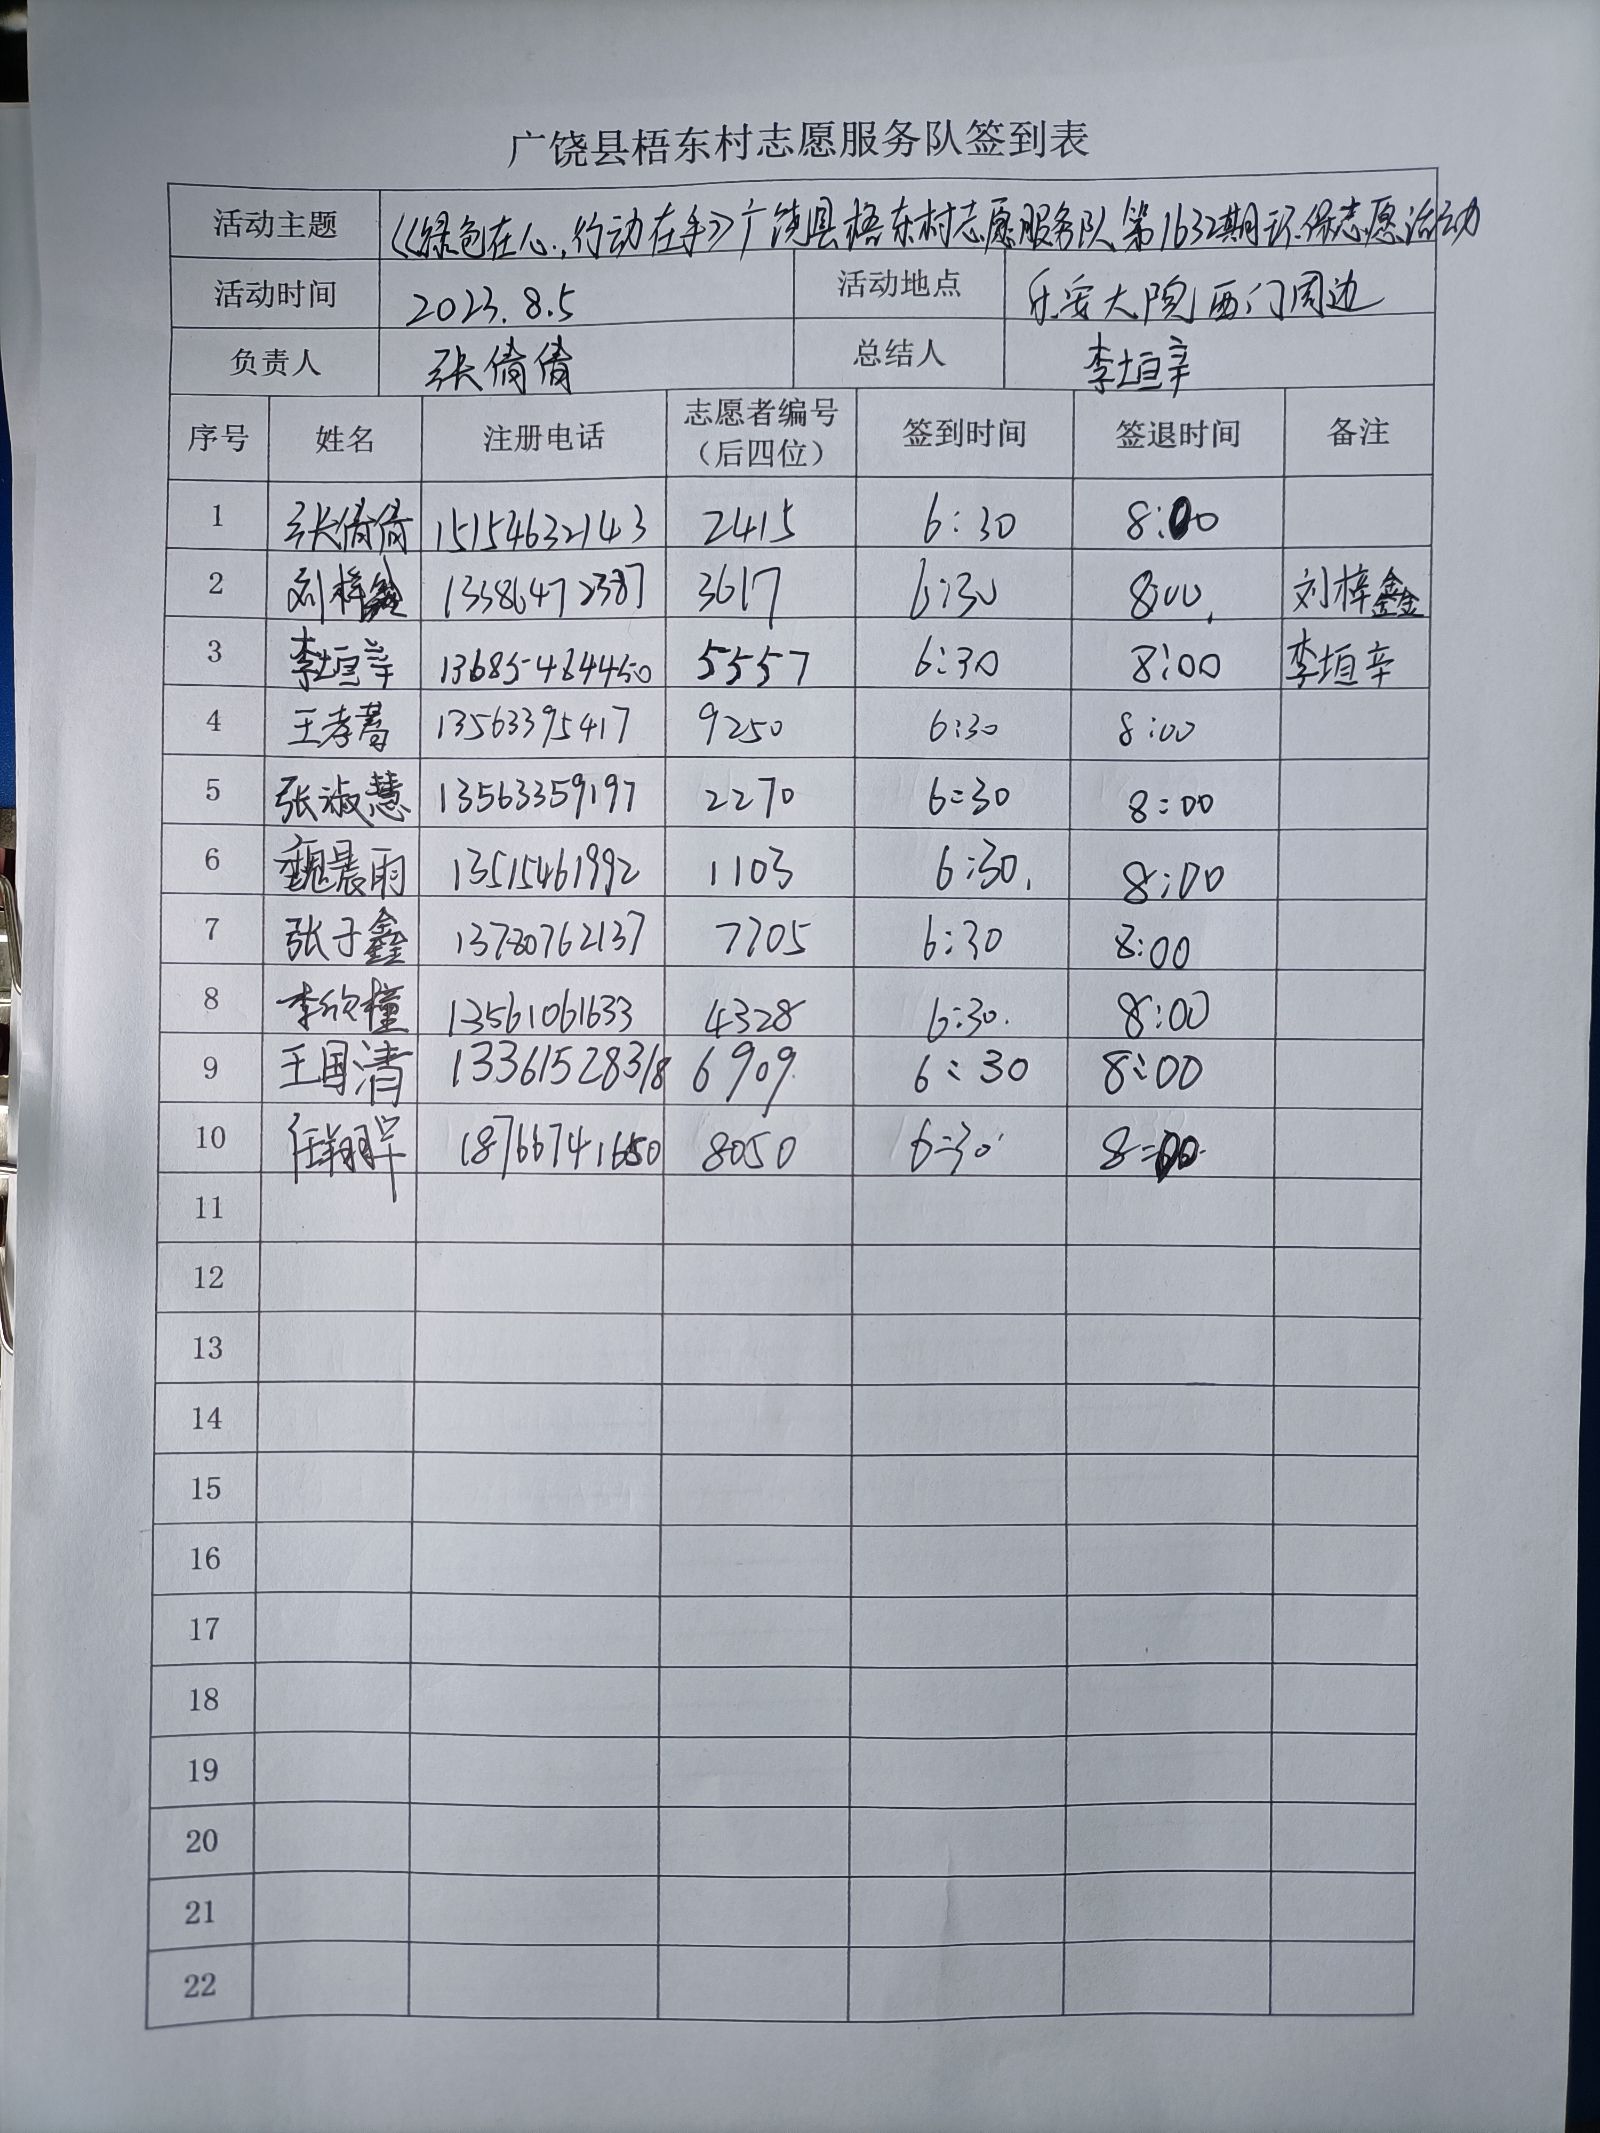 广饶县梧东村志愿服务队签到表
活动主题 《绿色在心,行动在手》广饶县梧东村志愿服务队第1632期环保志愿活动
活动时间 2023.8.5 活动地点 乐安大院西门周边
负责人 张倩倩 总结人 李垣辛
序号 姓名 注册电话 志愿者编号（后四位） 签到时间 签退时间 备注
1 张倩倩 15154632143 2415 6:30 8:00
2 刘梓鑫 13386472387 3617 6:30 8:00 刘梓鑫
3 李垣辛 13685484450 5557 6:30 8:00 李垣辛
4 13563395417 9250 6:30 8:00
5 张淑慧 13563359197 2270 6:30 8:00
6 魏晨雨 13515461992 1103 6:30 8:00
7 张子鑫 13780762137 7705 6:30 8:00
8 李欣橦 13561061633 4328 6:30 8:00
9 王国清 13361528318 6909 6:30 8:00
10 8050 6:30 8:00
11
12
13
14
15
16
17
18
19
20
21
22